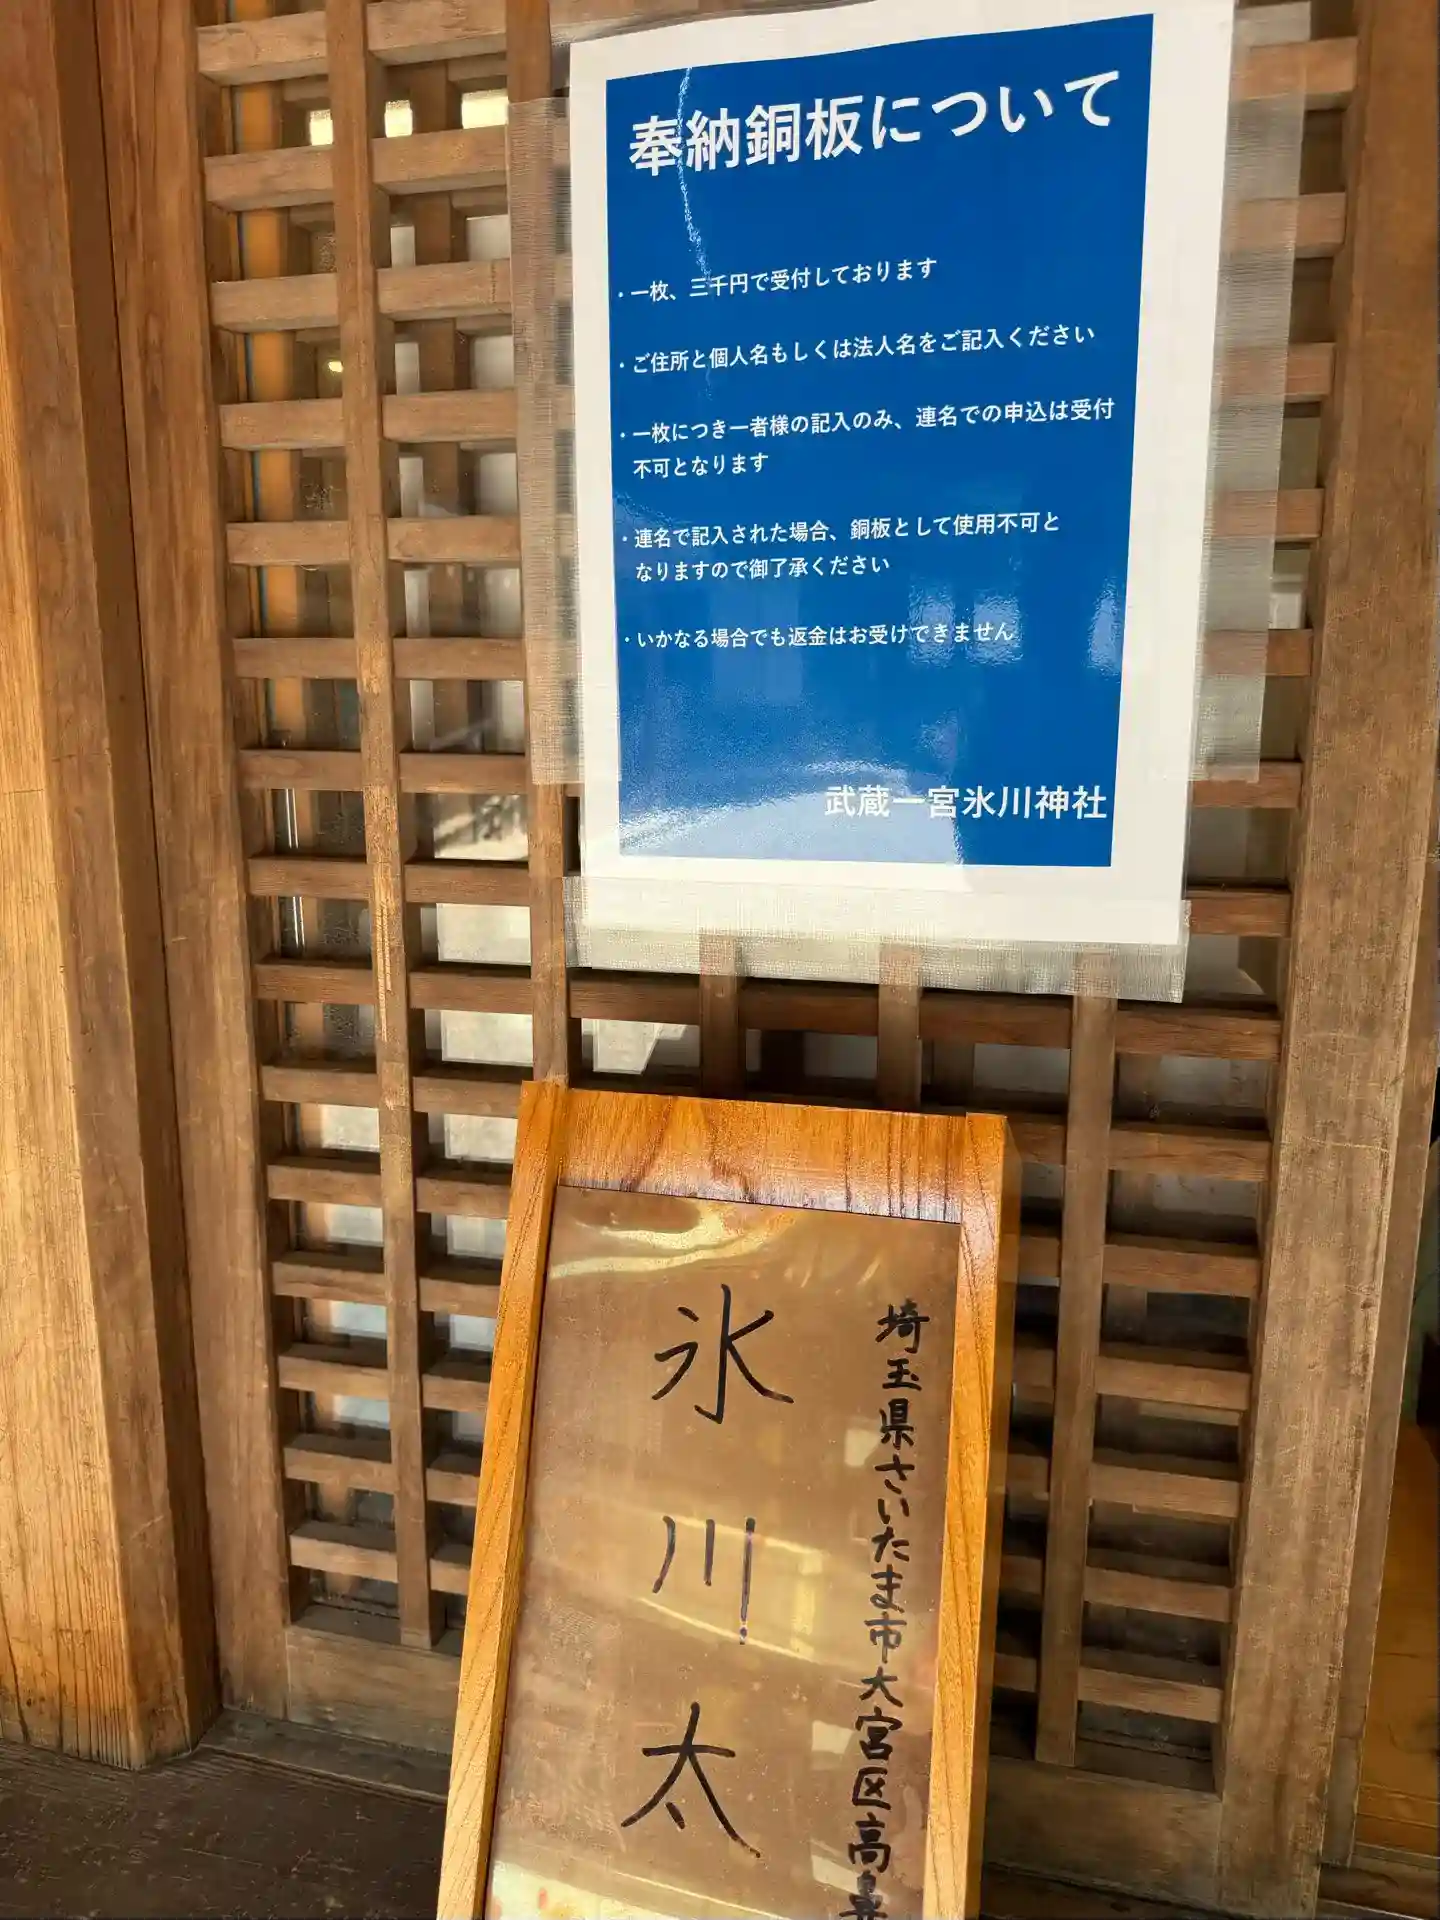 奉納銅板について
・一枚、三千円で受付しております
・ご住所と個人名もしくは法人名をご記入ください
・一枚につき一者様の記入のみ、連名での申込は受付
不可となります
・連名で記入された場合、銅板として使用不可と
なりますので御了承ください
・いかなる場合でも返金はお受けできません
武蔵一宮氷川神社
埼玉県さいたま市大宮区高鼻
氷川太